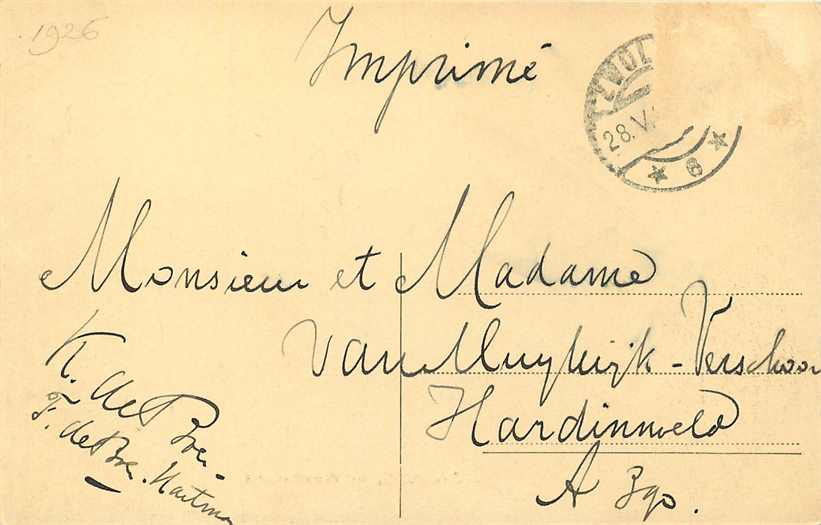 1926
Imprimé
ZWOL
28.V.
6
Monsieur et Madame
van Muylwijk-Verschoor
Hardinxveld
A 390.
K. de Bree-
F. de Bree. Hartman